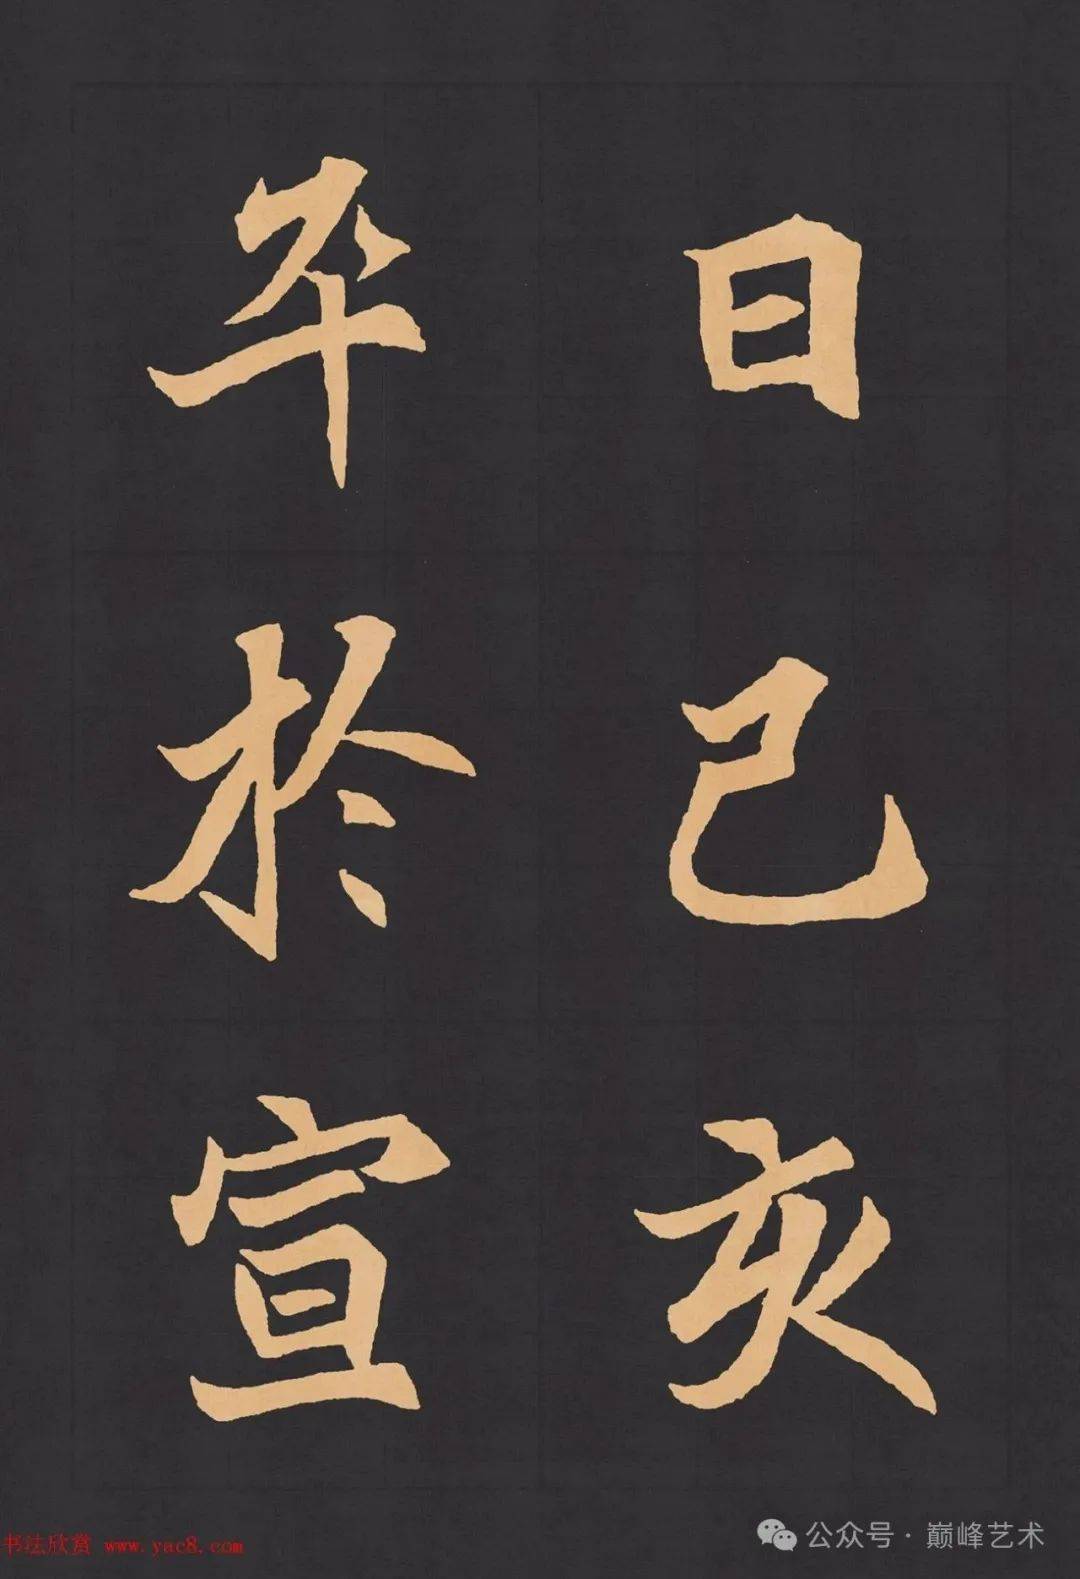 日己亥
卒於宣
书法欣赏 www.yac8.com
公众号·巅峰艺术